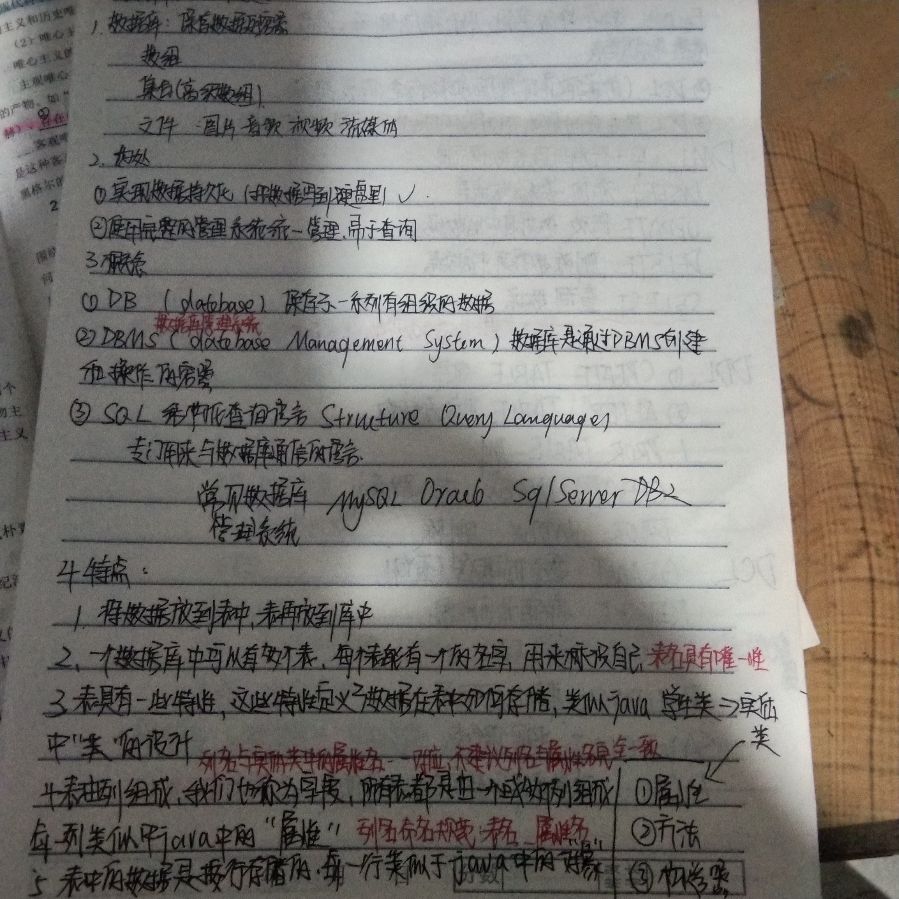 1、数据库：保存数据的容器
数组
集合(高级数组)
文件：图片 音频 视频 流媒体
2、好处
①实现数据持久化（将数据写到硬盘里）✓
②使用完整的管理系统统一管理、易于查询
3、概念
①DB （database）保存了一系列有组织的数据
数据库管理系统
②DBMS（database Management System）数据库是通过DBMS创建
和操作的容器
③ SQL 结构化查询语言 Structure Query Language
专门用来与数据库通信的语言
常见数据库 MySQL Oracle SqlServer DB2
管理系统
4、特点：
1、将数据放到表中，表再放到库中
2、一个数据库中可以有多个表，每个表都有一个的名字，用来标识自己 表名具有唯一性
3、表具有一些特性，这些特性定义了数据在表中如何存储，类似java 学生类⇒实体
类
中"类"的设计
列名与实体类中的属性名一一对应，不建议列名与属性名完全一致
4、表由列组成，我们也称为字段，所有表都是由一个或多个列组成 ①属性
每一列类似于java中的"属性" 列名命名规范：表名_属性名 ②方法
5、表中的数据是按行存储的，每一行类似于java中的"对象" ③构造器
主义和历史唯
（2）唯心主
唯心主义的
主观唯心
的产物。如"
客观唯
是这种客
黑格尔的